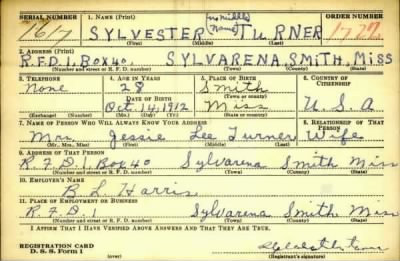 SERIAL NUMBER 1. NAME (Print) ORDER NUMBER
1617 SYLVESTER (no middle name) TURNER 1779
(First) (Middle) (Last)
2. ADDRESS (Print)
R.F.D. 1, BOX 40 SYLVARENA, SMITH, MISS
(Number and street or R. F. D. number) (Town) (County) (State)
3. TELEPHONE 4. AGE IN YEARS 5. PLACE OF BIRTH 6. COUNTRY OF CITIZENSHIP
None 28 Smith
DATE OF BIRTH (Town or county)
Oct. 14, 1912 Miss U.S.A
(Exchange) (Number) (Mo.) (Day) (Yr.) (State or country)
7. NAME OF PERSON WHO WILL ALWAYS KNOW YOUR ADDRESS 8. RELATIONSHIP OF THAT PERSON
Mrs Jessie Lee Turner Wife
(Mr., Mrs., Miss) (First) (Middle) (Last)
9. ADDRESS OF THAT PERSON
R.F.D. 1, Box 40 Sylvarena Smith Miss
(Number and street or R. F. D. number) (Town) (County) (State)
10. EMPLOYER'S NAME
B. L. Harris
11. PLACE OF EMPLOYMENT OR BUSINESS
R.F.D. 1 Sylvarena Smith Miss
(Number and street or R. F. D. number) (Town) (County) (State)
I AFFIRM THAT I HAVE VERIFIED ABOVE ANSWERS AND THAT THEY ARE TRUE.
REGISTRATION CARD
D. S. S. Form 1 (Registrant's signature)